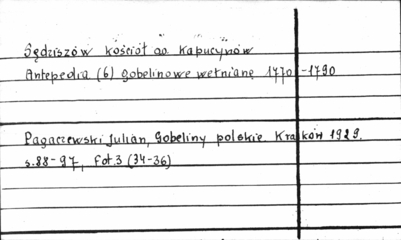 Sędziszów kościół oo. Kapucynów
Antepedia (6) gobelinowe wełniane 1770-1790
Pagaczewski Julian, Gobeliny polskie. Kraków 1929.
s.88-97, Fot.3 (34-36)